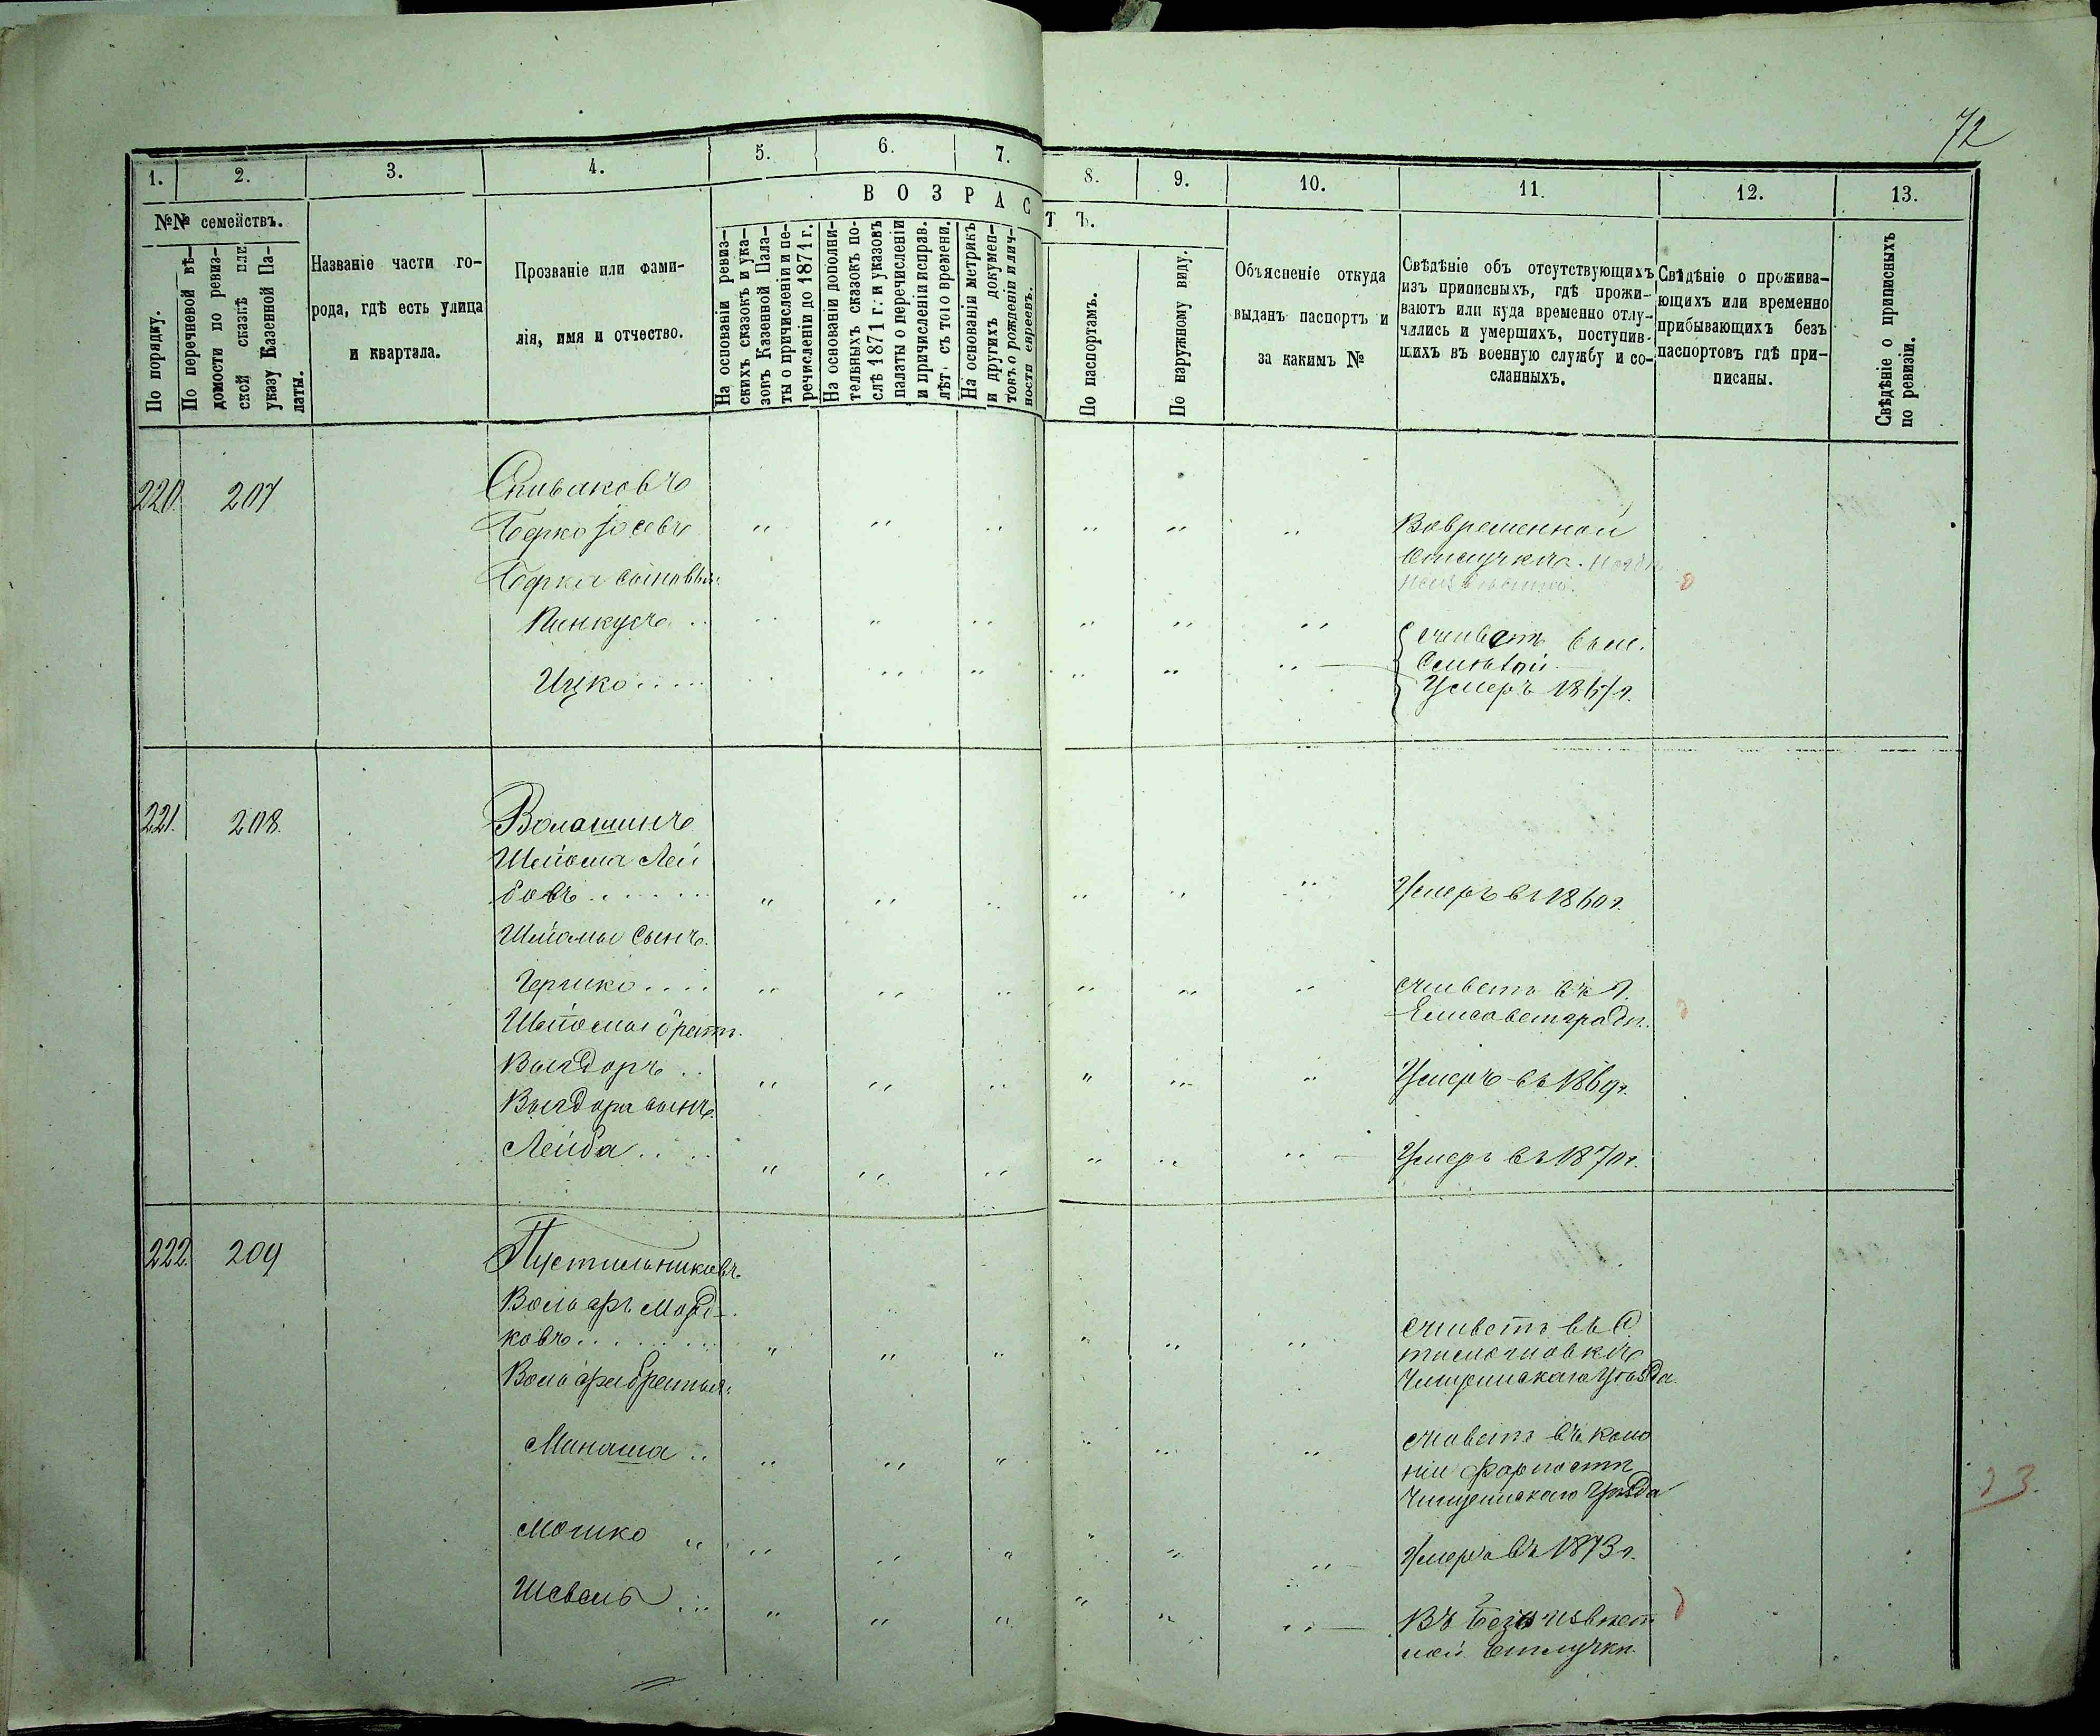 72
1. 2. 3. 4. 5. 6. 7. 8. 9. 10. 11. 12. 13.
№№ семействъ.
В О З Р А С Т Ъ.
По порядку.
По перечневой вѣ-
домости по ревиз-
ской сказкѣ или
указу Казенной Па-
латы.
Названіе части го-
рода, гдѣ есть улица
и квартала.
Прозваніе или фами-
лія, имя и отчество.
На основаніи ревиз-
скихъ сказокъ и ука-
зовъ Казенной Пала-
ты о причисленіи и пе-
речисленіи до 1871 г.
На основаніи дополни-
тельныхъ сказокъ по-
слѣ 1871 г. и указовъ
палаты о перечисленіи
и причисленіи исправ.
лѣт. съ того времени.
На основаніи метрикъ
и другихъ докумен-
товъ о рожденіи и лич-
ности евреевъ.
По паспортамъ.
По наружному виду.
Объясненіе откуда
выданъ паспортъ и
за какимъ №
Свѣдѣніе объ отсутствующихъ
изъ приписныхъ, гдѣ прожи-
ваютъ или куда временно отлу-
чились и умершихъ, поступив-
шихъ въ военную службу и со-
сланныхъ.
Свѣдѣніе о прожива-
ющихъ или временно
прибывающихъ безъ
паспортовъ гдѣ при-
писаны.
Свѣдѣніе о приписныхъ
по ревизіи.
220. 207
Спиваковъ
Берко Іосевъ
Вовременной
Отлучкѣ.
Берка сыновья:
Пинкусъ
живетъ
Ицко
Умеръ
221. 208.
Волошинъ
Шліома Лей
бовъ
Умеръ въ 1860 г.
Шліомы Сынъ.
Гершко
живетъ въ г.
Шліомы братъ.
Елисаветградѣ.
Вигдоръ
Умеръ въ 1869 г.
Вигдора сынъ.
Лейба
Умеръ въ 1870 г.
222. 209
Пустильниковъ
Вольфъ Морд-
ковъ
живетъ въ
Вольфа братья:
Чигринскаго Уѣзда.
Манаша
живетъ въ коло
ніи Форпостѣ
Чигринскаго Уѣзда
Мошко
Умеръ въ 1873 г.
Шевель
Въ Безъизвѣст
ной Отлучкѣ.